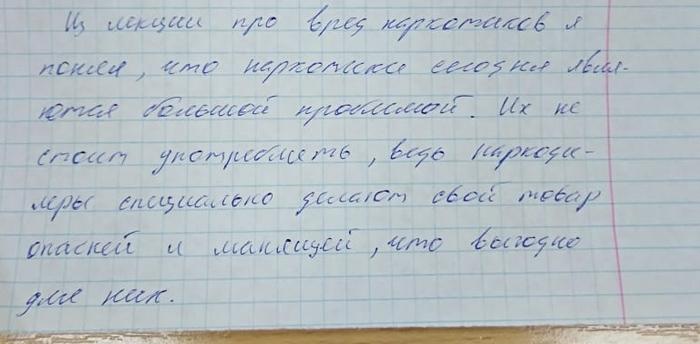 Из лекции про вред наркотиков я
понял, что наркотики сегодня явля-
ются большой проблемой. Их не
стоит употреблять, ведь наркоди-
леры специально делают свой товар
опасней и манящей, что выгодно
для них.